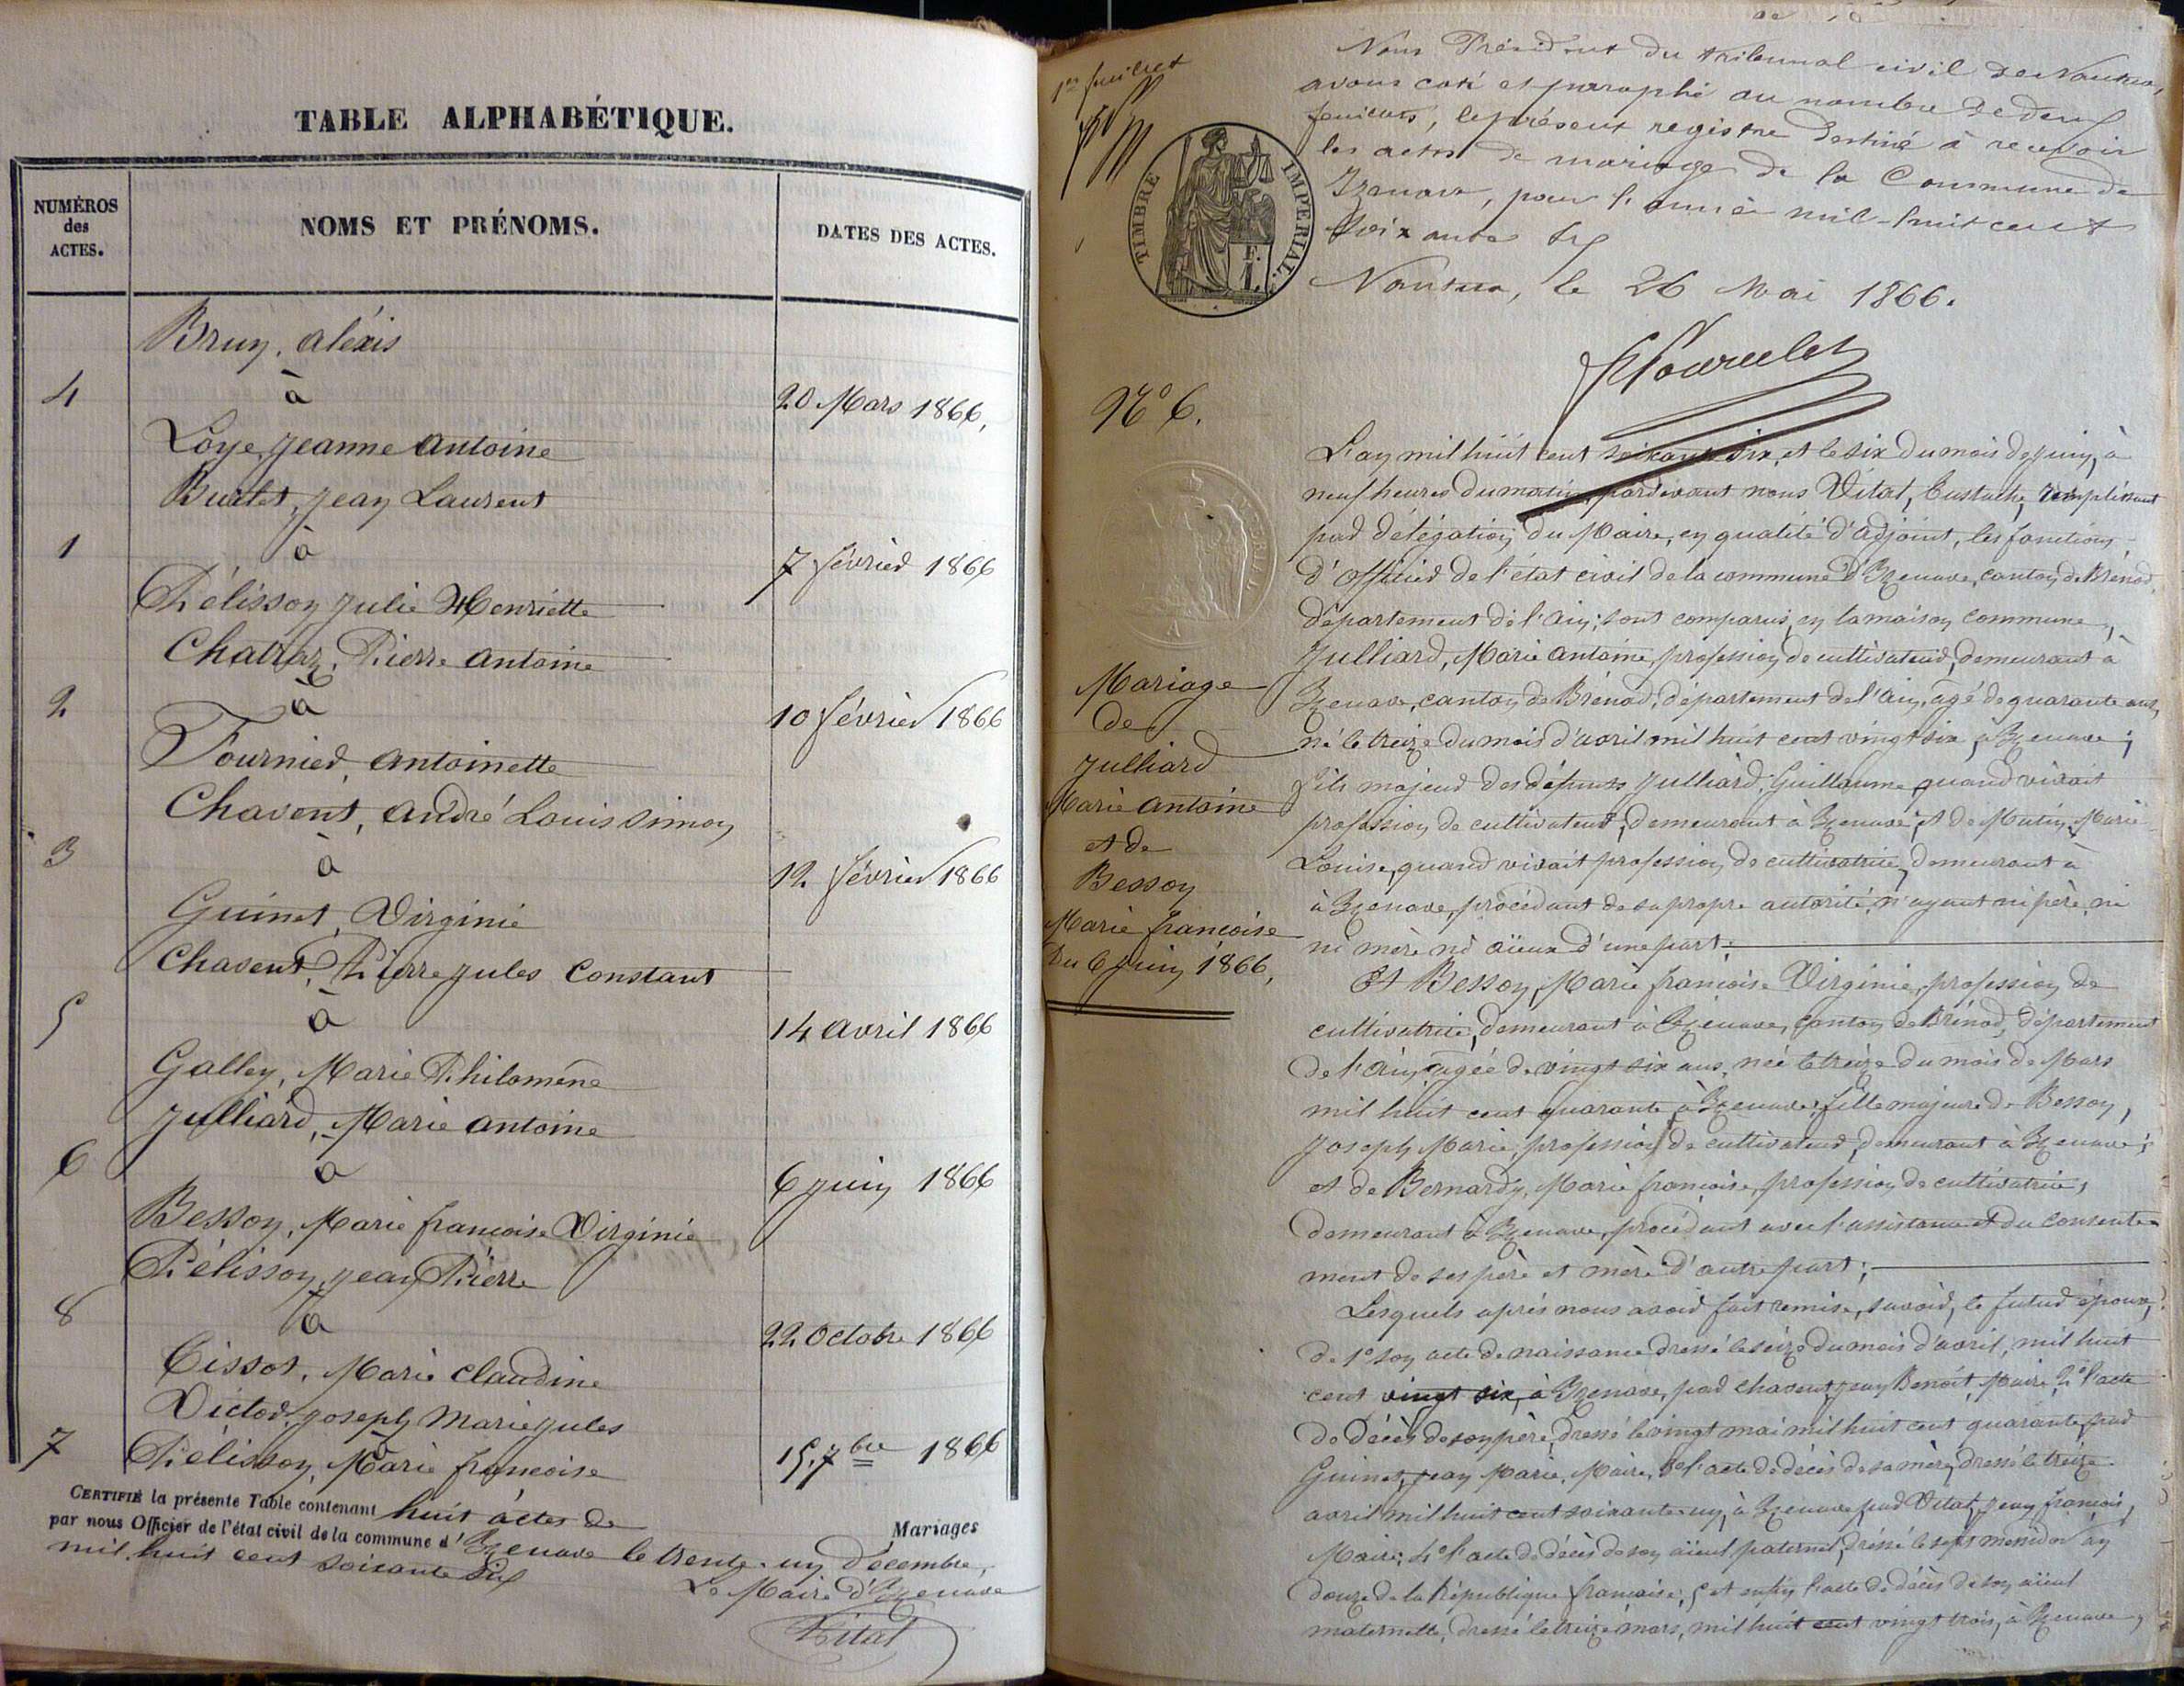 TABLE ALPHABÉTIQUE.
NUMÉROS des ACTES.
NOMS ET PRÉNOMS.
DATES DES ACTES.
Brun, aléxis
4 à 20 Mars 1866,
Loye, Jeanne antoine
Burlet, Jean Laurent
1 à 7 février 1866
Pélisson Julie Henriette
Chatraz, Pierre antoine
2 à 10 février 1866
Fournier, antoinette
Chavent, andré Louis Simon
3 à 12 février 1866
Guinet, Virginie
Chavent, Pierre Jules Constant
5 à 14 avril 1866
Galley, Marie Philomène
Julliard, Marie antoine
6 à 6 juin 1866
Besson, Marie françoise Virginie
Pélisson, Jean Pierre
8 à 22 Octobre 1866
Cissot, Marie Claudine
Victor, Joseph Marie Jules
7 Pélisson, Marie françoise 15, 7bre 1866
CERTIFIÉ la présente Table contenant huit actes de Mariages
par nous Officier de l'état civil de la commune d'Izenave le trente-un Décembre,
mil huit cent soixante Six
Le Maire d'Izenave
Vital
1er feuillet
TIMBRE IMPERIAL.
F.
1.
Nous Président du tribunal civil de Nantua,
avons coté et paraphé au nombre de deux
feuillets, le présent registre destiné à recevoir
les actes de mariage de la Commune de
Izenave, pour l'année mil-huit cent
Soixante Six
Nantua, le 26 Mai 1866.
N° 6.
Mariage
de
Julliard
Marie antoine
et de
Besson
Marie françoise
Du 6 juin 1866,
L'an mil huit cent soixante six, et le six du mois de juin, à
neuf heures du matin, pardevant nous Vital, Eustache, remplissant
par délégation du Maire, en qualité d'adjoint, les fonctions
d'officier de l'état civil de la commune d'Izenave, canton de Brénod,
département de l'ain; sont comparus, en la maison commune,
Julliard, Marie antoine, profession de cultivateur, demeurant à
Izenave, canton de Brénod, département de l'ain, agé de quarante ans,
né le treize du mois d'avril mil huit cent vingt six, à Izenave;
fils majeur des défunts Julliard, Guillaume, quand vivait
profession de cultivateur, demeurant à Izenave, et de Mutin, Marie
Louise, quand vivait profession de cultivatrice, demeurant à
à Izenave, procédant de sa propre autorité, n'ayant ni père, ni
ni mère ni aïeux d'une part;
Et Besson, Marie françoise Virginie, profession de
cultivatrice, demeurant à Izenave, canton de Brénod, département
de l'ain, agée de vingt six ans, née le treize du mois de Mars
mil huit cent quarante, à Izenave, fille majeure de Besson,
Joseph Marie, profession de cultivateur, demeurant à Izenave;
et de Bernardy, Marie françoise, profession de cultivatrice,
demeurant à Izenave, procédant avec l'assistance et du consente-
ment de ses père et mère d'autre part;
Lesquels aprés nous avoir fait remise, savoir, le futur époux,
de 1° son acte de naissance dressé le seize du mois d'avril, mil huit
cent vingt six, à Izenave, par Chavent, Jean Benoît, Maire, 2° l'acte
de décès de son père, dressé le vingt mai mil huit cent quarante, par
Guinet, Jean Marie, Maire, 3° l'acte de décès de sa mère, dressé le treize
avril mil huit cent soixante-un, à Izenave, par Vital, Jean françois,
Maire; 4° l'acte de décès de son aïeul paternel, dressé le sept messidor an
douze de la République française; 5° et enfin l'acte de décès de son aïeul
maternelle, dressé le treize mars, mil huit cent vingt trois, à Izenave,